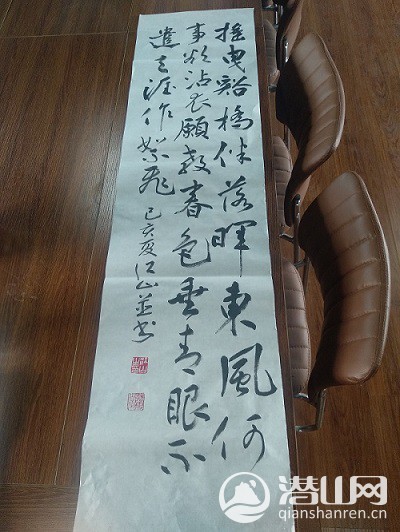 摇曳谿桥伴落晖东风何
事欲沾衣愿教春色垂青眼不
遣天涯作絮飞
己亥夏江山并书
潜山网
qianshanren.cn